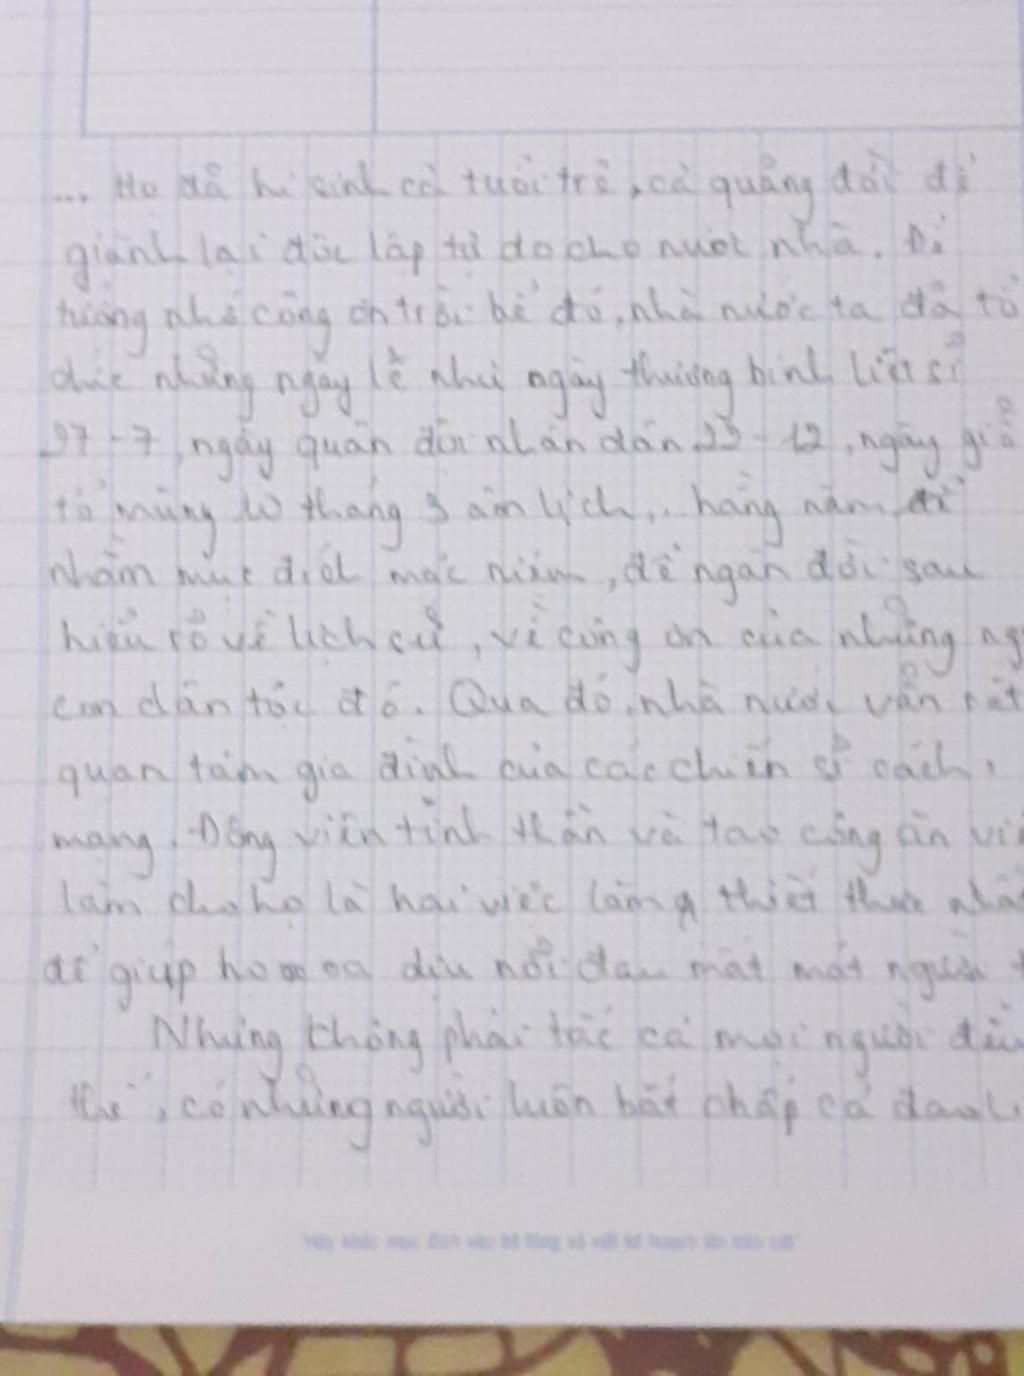 ... Họ đã hi sinh cả tuổi trẻ, cả quãng đời để
giành lại độc lập tự do cho nước nhà. Để
tưởng nhớ công ơn trời bể đó, nhà nước ta đã tổ
chức những ngày lễ như ngày thương binh liệt sĩ
27-7, ngày quân đội nhân dân 22-12, ngày giỗ
tổ mùng 10 tháng 3 âm lịch,.. hằng năm để
nhằm mục đích mặc niệm, để ngàn đời sau
hiểu rõ về lịch sử, về công ơn của những
con dân tộc đó. Qua đó, nhà nước vẫn rất
quan tâm gia đình của các chiến sĩ cách
mạng. Động viên tinh thần và tạo công ăn
làm cho họ là hai việc làm thiết thực nhất
để giúp họ xoa dịu nỗi đau mất mát người
Nhưng không phải tấc cả mọi người đều
thế, có những người luôn bất chấp cả